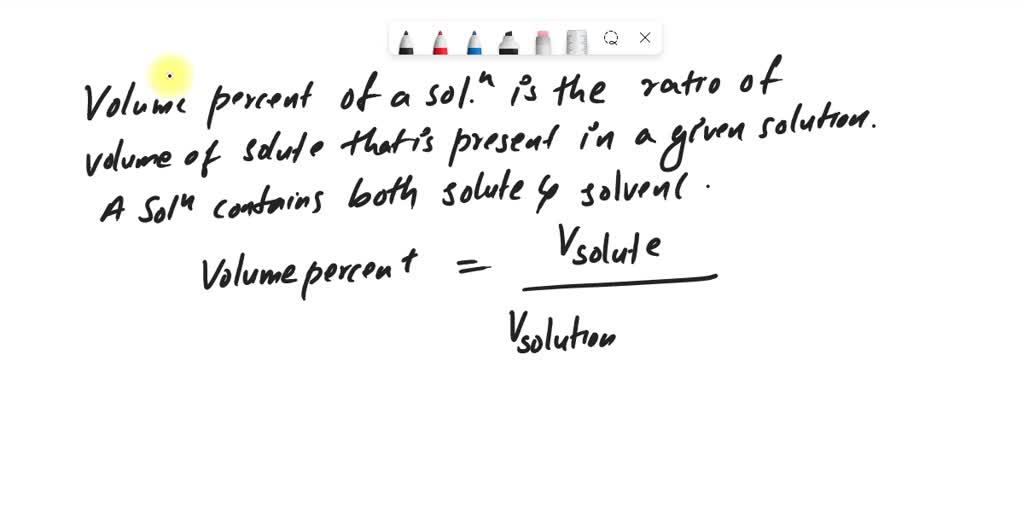 Volume percent of a sol.ⁿ is the ratio of
volume of solute that is present in a given solution.
A Solⁿ contains both solute & solvent.
Volume percent = Vsolute
Vsolution